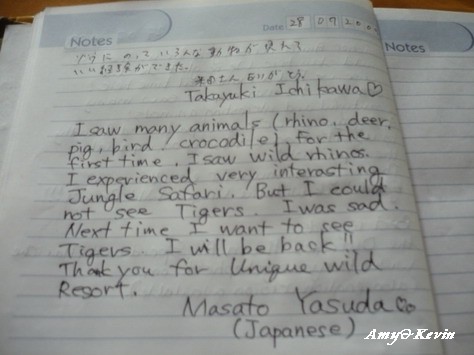 Notes
Date 28 07 200
Notes
ゾウにのっていろんな動物が見れる
いい経験ができました。
ありがとう。
Takayuki Ichikawa♡
I saw many animals (rhino, deer,
pig, bird, crocodile) For the
first time, I saw wild rhinos.
I experienced very interasting
Jungle Safari. But I could
not see Tigers. I was sad.
Next time I want to see
Tigers. I will be back!!
Thank you for Unique wild
Resort.
Masato Yasuda
(Japanese)
Amy&Kevin